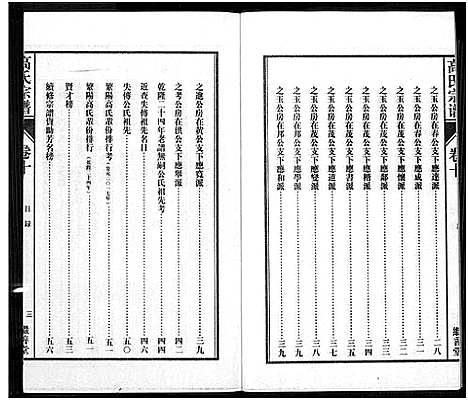 高氏宗譜
卷十
之玉公房在春公支下應達派……二八
之玉公房在春公支下應成派……
之玉公房在茂公支下應懷派……
之玉公房在茂公支下應鄰派……
之玉公房在茂公支下應樁派……
之玉公房在茂公支下應書派……
之玉公房在茂公支下應變派……三八
之玉公房在邦公支下應學派……三九
之玉公房在邦公支下應和派……三九
繼善堂
之遜公房在黃公支下應寬派……三九
之考公房在洪公支下應舉派……四二
乾隆二十四年老譜無嗣公氏祖先考……四四
近查失傳祖先考……四六
失傳公氏祖先……五〇
繁陽高氏輩份排行考……五一
繁陽高氏輩份排行……五一
賢才榜……五三
續修宗譜資助芳名榜……五六
高氏宗譜
卷十
目錄
三
繼善堂